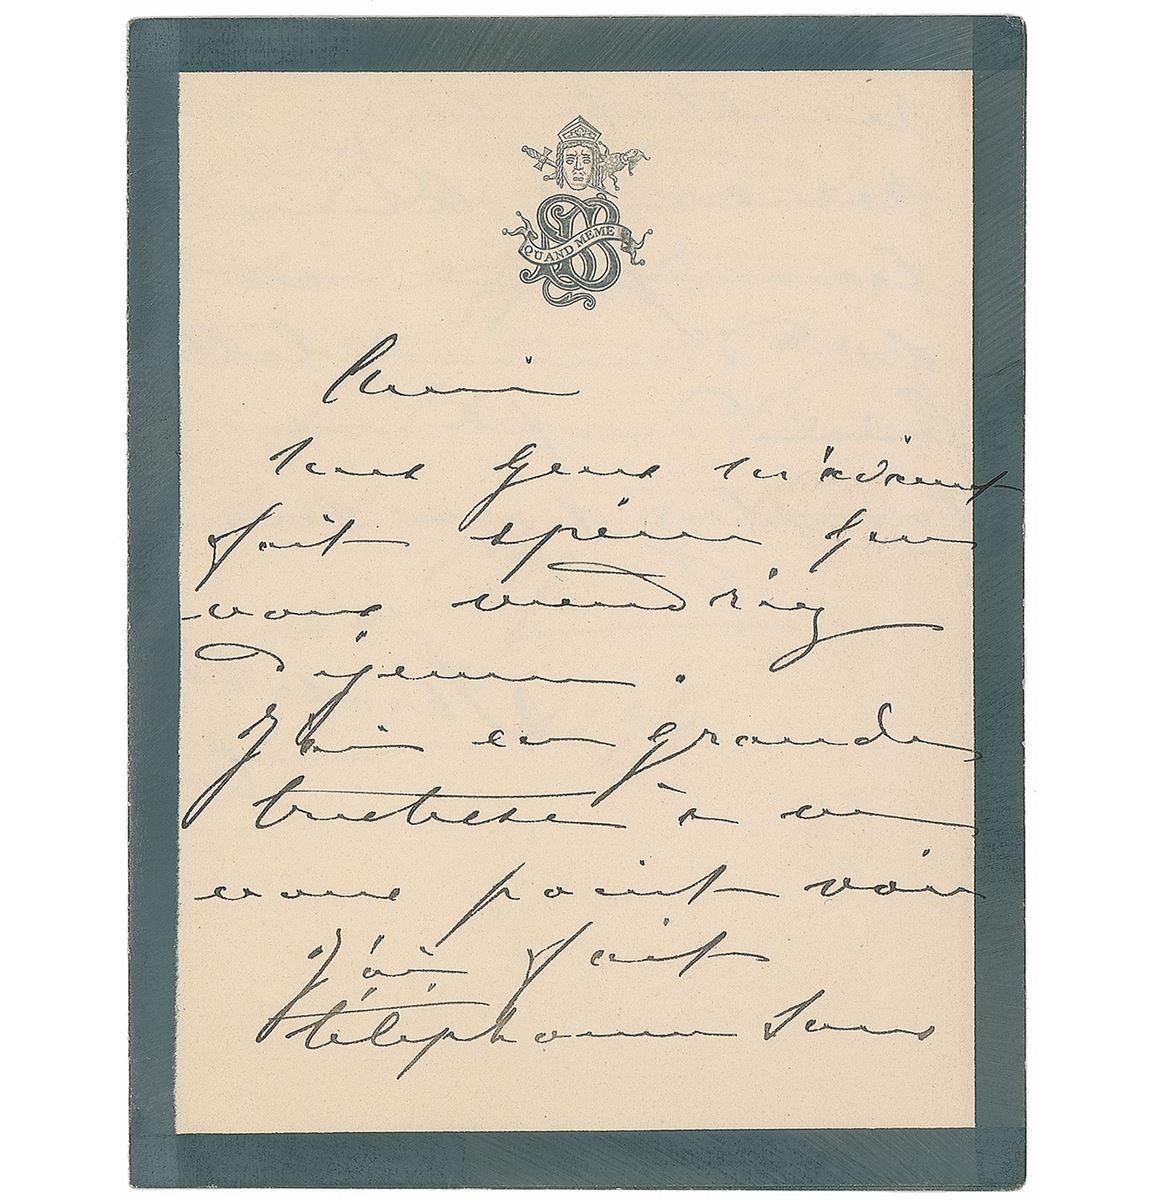 QUAND MEME
SB
Tous Gens m'avaient
fait espérer que
vous viendriez
Déjeuner.
J'ai eu grande
tristesse à ne
vous point voir
J'ai fait
téléphoner Sans